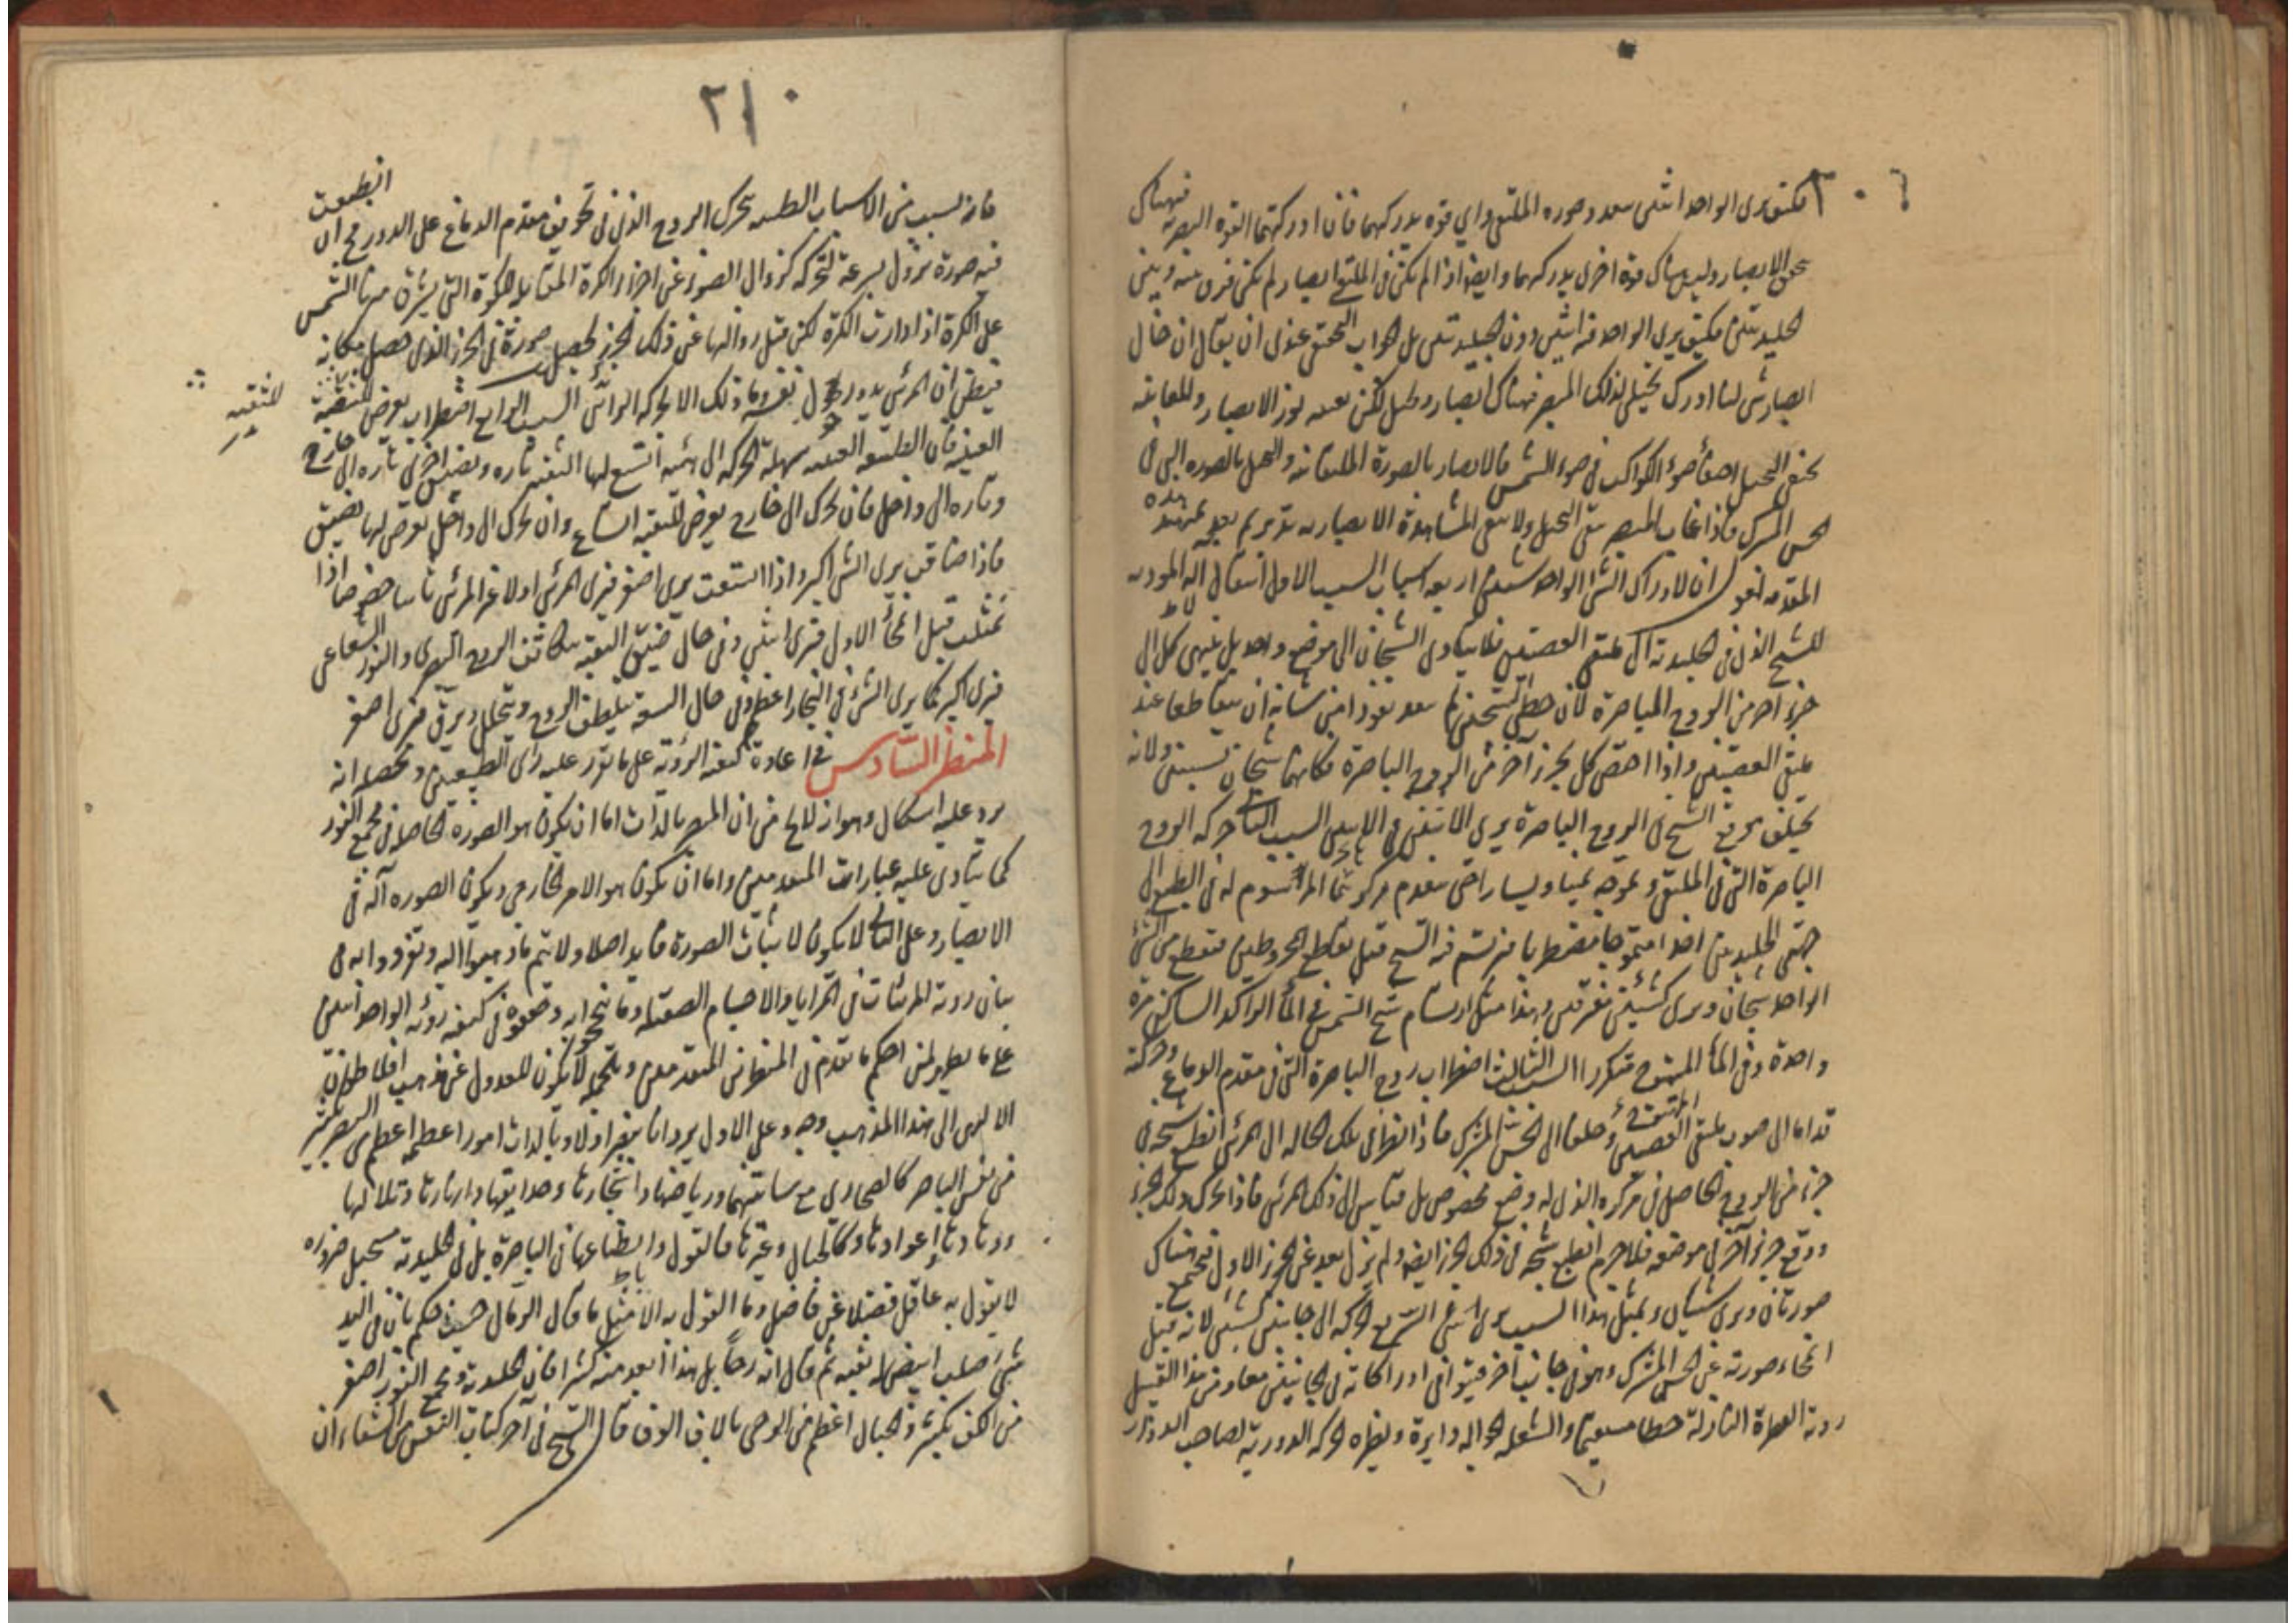 ٢٠٩
فكيف يرى الواحد اثنين بعد وصوره الملتقى واي قوه يدركهما فان ادركتهما القوه البصريه فهناك
الابصار وليس هناك قوة اخرى يدركهما وايضا اذا لم يكن في الملتقى ابصار لم يكن فرق بينه وبين
الجليديتين فكيف يرى الواحد فيه اثنين دون الجليديتين بل الجواب المحقق عندي ان يقال ان خال
ابصار شي لنا ادرك تخيلي لذلك المبصر فهناك ابصار وتخيل لكن نور الابصار والمعاينه
ضوء الكواكب في ضوء الشمس فالابصار بالصورة والتخيل بالصوره التي في
الحس المشترك فاذا غاب المبصر بقي التخيل ولا يبقى المشاهدة الابصاريه بعد تمهيد هذه
المقدمه نقول ان لادراك الشي الواحد شيئين اربعه اسباب السبب الاول انتقال الاله المؤديه
للشبح الذي في الجليديه الى ملتقى العصبتين فلا يتادى الشبحان الى موضع واحد بل ينتهي كل الى
جزء اخر من الروح الباصرة لان خطي الشبحين لم ينفذا نفوذا من شانه ان يتقاطعا عند
ملتقى العصبتين واذا اختص كل بجزء آخر من الروح الباصرة فكانهما شبحان لشيئين ولانه
يختلف موقع الشبح في الروح الباصرة يرى الاثنين السبب الثاني حركه الروح
الباصرة التي في الملتقى وتموجه يمينا ويسارا حتى يتقدم مركزها المرسوم له في الطبع الى
جهتي الجليديتين اخذا متموجا مضطربا فيرتسم فيه الشبح قبل تقاطع المخروطين من الشي
الواحد شبحان ويرى كشيئين متفرقين وهذا مثل ارتسام شبح الشمس في الماء الراكد الساكن مرة
واحدة وفي الماء المتموج متكررا السبب الثالث اضطراب روح الباصرة التي في مقدم الدماغ وحركته
قداما الى صوب ملتقى العصبتين وخلفا الى الحس المشترك فاذا نظر في تلك الحاله الى المرئي انطبع شبحه في
جزء من الروح الحاصل في مركزه الذي له وضع مخصوص بل قياس الى ذلك المرئي فاذا تحرك ذلك الجزء
ووقع جزء آخر في موضعه فلا جرم انطبع شبحه في ذلك الجزء ايضا ولم يزل بعد عن الجزء الاول فتجتمع هناك
صورتان ويرى شيئان وبمثل هذا السبب يرى الشي السريع الحركه الى جانبين كشيئين لانه قبل
انمحاء صورته عن الحس المشترك وهو في جانب آخر فيتوافى ادراكاته في الجانبين معا ومن هذا القبيل
رؤية القطرة النازلة خطا مستقيما والشعله الجواله دايرة ونظيره الحركه الدوريه لصاحب الدوار
٢١٠
فانه لسبب من الاسباب الطبيه يتحرك الروح الذي في تجويف مقدم الدماغ على الدور فيه ان انطبعت
فيه صورة تزول بسرعة لتحركه كزوال الضوء عن اجزاء الكرة المقابله للكوة التي يشرق منها الشمس
على الكرة اذا دارت الكرة لكن قبل زوالها عن ذلك الجزء يحصل صورة في الجزء الذي حصل مكانه
فيظن ان المرئي يدور حول نفسه وما ذلك الا لحركه الرائي السبب الرابع اضطراب يعرض للثقبة
للثقبه
العنبيه فان الطبقه العنبيه سهلة الحركه الى هيئه اتسع لها الثقبه تاره ويضيق اخرى تاره الى خارج
وتاره الى داخل فان تحرك الى خارج يعرض للثقبه اتساع وان تحرك الى داخل يعرض لها تضيق
فاذا ضاقت يرى الشي اكبر واذا اتسعت يرى اصغر فيرى المرئي اولا غير المرئي ثانيا خصوصا اذا
تمثلت قبل انمحاء الاول فيرى اثنين وفي حال ضيق الثقبه يتكاثف الروح البصري والنور الشعاعي
فيرى اكبر كما يرى الشي في البخار اعظم وفي حال السعه يتلطف الروح ويتحلل ويرق فيرى اصغر
المنظر السادس في اعادة كيفية الرؤية على ما تقرر عليه رأى الطبيعيين ومحصله انه
يرد عليه اشكال وهو انه لايخ من ان المبصر بالذات اما ان يكون هو الصورة الحاصله في مجمع النور
كما ينادي عليه عبارات المتقدمين واما ان يكون هو الامر الخارجي ويكون الصوره آلة في
الابصار وعلى الثاني لا يكون لاثبات الصورة فايدة اصلا ولا يتم ما ذهبوا اليه
بيان رؤية المرئيات في المرايا والاجسام الصقيله وما نحوا به في كيفية رؤيه الواحد اثنين
على ما يظهر لمن احكم ما تقدم في المنظرين المتقدمين وبالجملة لا يكون للعدول عن مذهب افلاطون
الالهي الى هذا المذهب وجه وعلى الاول يرد انا نبصر اولا وبالذات امورا عظيمه اعظم من البصر بكثير بل
من نفس الباصر كالصحاري مع بساتينها ورياضها واشجارها وحدايقها وانهارها وتلالها
ووهادها واغوارها وكالجبال وغيرها فالقول وانطباعها في الباصرة بل في الجليديه مستحيل ضروره
لا يقول به عاقل فضلا عن فاضل وما القول به الا مثل ما قال الرمال حيث حكم بان في اليد
شي صلب ابيض له ثقبه ثم قال انه رحاً بل هذا ابعد منه كثيرا فان الجليديه ومجمع النور اصغر
من الكف بكثير والجبال اعظم من الرحى بالاف الوف قال الشيخ في آخر كتاب النفس من الشفاء ان